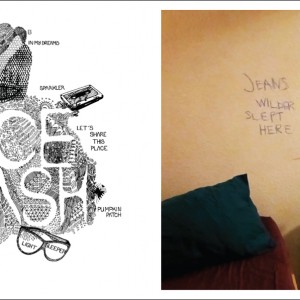 IN MY DREAMS
SPARKLER
LET'S
SHARE
THIS
PLACE
PUMPKIN
PATCH
LIGHT SLEEPER
JEANS
WILDER
SLEPT
HERE